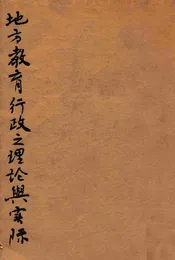 地方教育行政之理論與實際